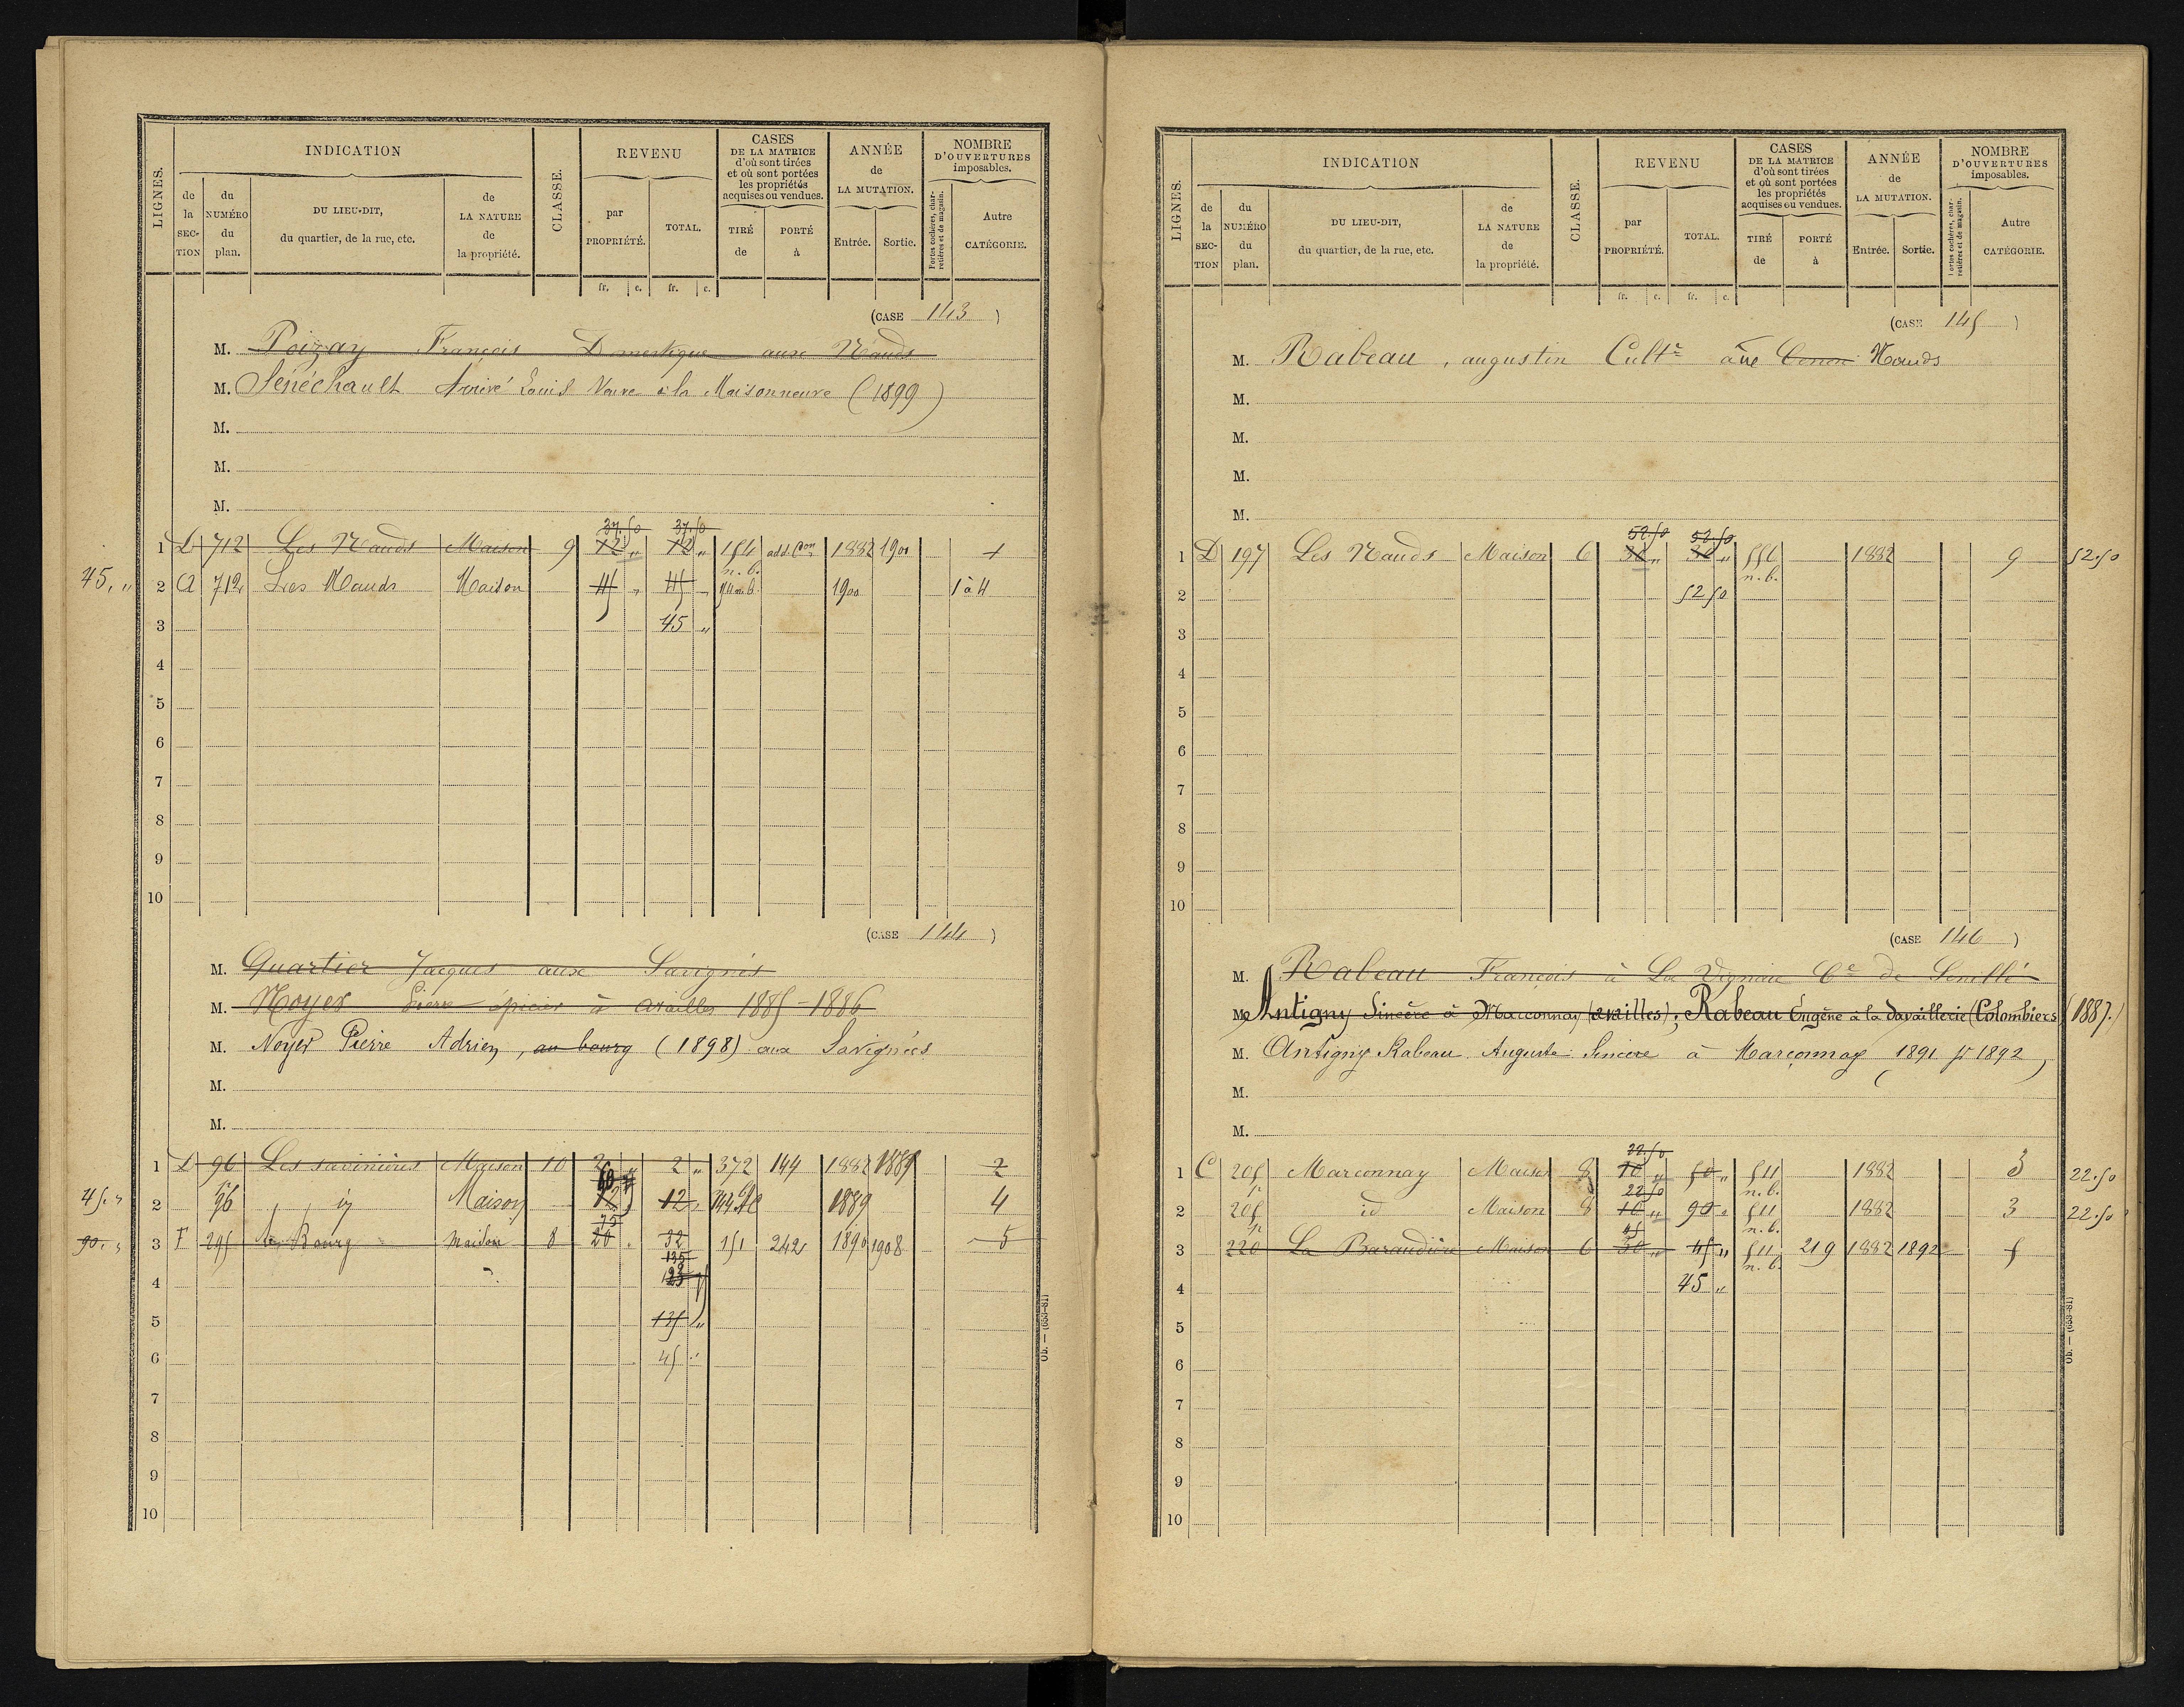 LIGNES.
INDICATION
de la SECTION
du NUMÉRO du plan.
DU LIEU-DIT, du quartier, de la rue, etc.
de LA NATURE de la propriété.
CLASSE.
REVENU
par PROPRIÉTÉ.
TOTAL.
CASES DE LA MATRICE d'où sont tirées et où sont portées les propriétés acquises ou vendues.
TIRÉ de
PORTÉ à
ANNÉE de LA MUTATION.
Entrée.
Sortie.
NOMBRE D'OUVERTURES imposables.
Portes cochères, charretières et de magasin.
Autre CATÉGORIE.
fr. c. fr. c.
(CASE 143)
M. Poizay François Domestique aux Nauds
M. Sénéchault Louis Veuve à la Maisonneuve (1899)
M.
M.
M.
37.50 37.50
1 D 712 Les Nauds Maison 9 12 „ 12 „ 154 add. Con 1882 1900 1
n. b.
45. „ 2 712 Les Nauds Maison 45 „ 45 1900 1 à 4
3 45 „
4
5
6
7
8
9
10
(CASE 144)
M. Quartier Jacques aux Savignés
M. Noyer Pierre épicier à availles 1885-1886
M. Noyer Pierre Adrien, au bourg (1898) aux Savignées
M.
M.
1 D 96 Les savinières Maison 10 2 „ 2 „ 372 144 1882 1889 2
45. „ 2 96 id Maison 12 12 „ 144 1889 4
75
90. „ 3 F 295 Le Bourg maison 8 20 32 151 242 1890 1908 5
135
4
5 135 „
6 45 „
7
8
9
10
Ob. — (653-81)
LIGNES.
INDICATION
de la SECTION
du NUMÉRO du plan.
DU LIEU-DIT, du quartier, de la rue, etc.
de LA NATURE de la propriété.
CLASSE.
REVENU
par PROPRIÉTÉ.
TOTAL.
CASES DE LA MATRICE d'où sont tirées et où sont portées les propriétés acquises ou vendues.
TIRÉ de
PORTÉ à
ANNÉE de LA MUTATION.
Entrée.
Sortie.
NOMBRE D'OUVERTURES imposables.
Portes cochères, charretières et de magasin.
Autre CATÉGORIE.
fr. c. fr. c.
(CASE 145)
M. Rabeau, augustin Cultr Nauds
M.
M.
M.
M.
52.50 52.50
1 D 197 Les Nauds Maison 6 30 „ 30 „ 556 1882 9 52.50
n. b.
2 52 50
3
4
5
6
7
8
9
10
(CASE 146)
M. Rabeau François à La Vignaie Cne de Senillé
M. Antigny Sincère à Marconnay (availles); Rabeau Eugène à la Davaillerie (Colombiers) (1887.)
M. Antigny Rabeau Auguste Sincère à Marconnay 1891 pr 1892
M.
M.
22.50
1 C 205 Marconnay Maison 8 10 „ 50 „ 511 1882 3 22.50
p. 22.50 n. b.
2 205 id Maison 8 10 „ 90 „ 511 1882 3 22.50
p. 45 n. b.
3 220 La Baraudière Maison 6 30 „ 45 „ 511 219 1882 1892 5
n. b.
4 45 „
5
6
7
8
9
10
Ob. — (653-81)